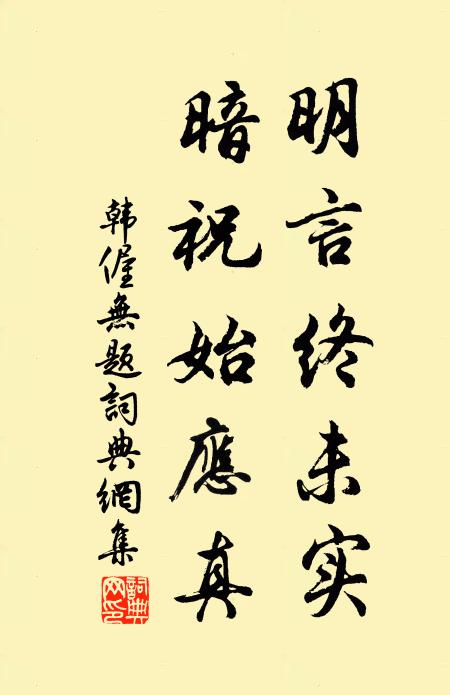 明言终未实
暗祝始應真
韩偓無题詞典網集
詞典网印